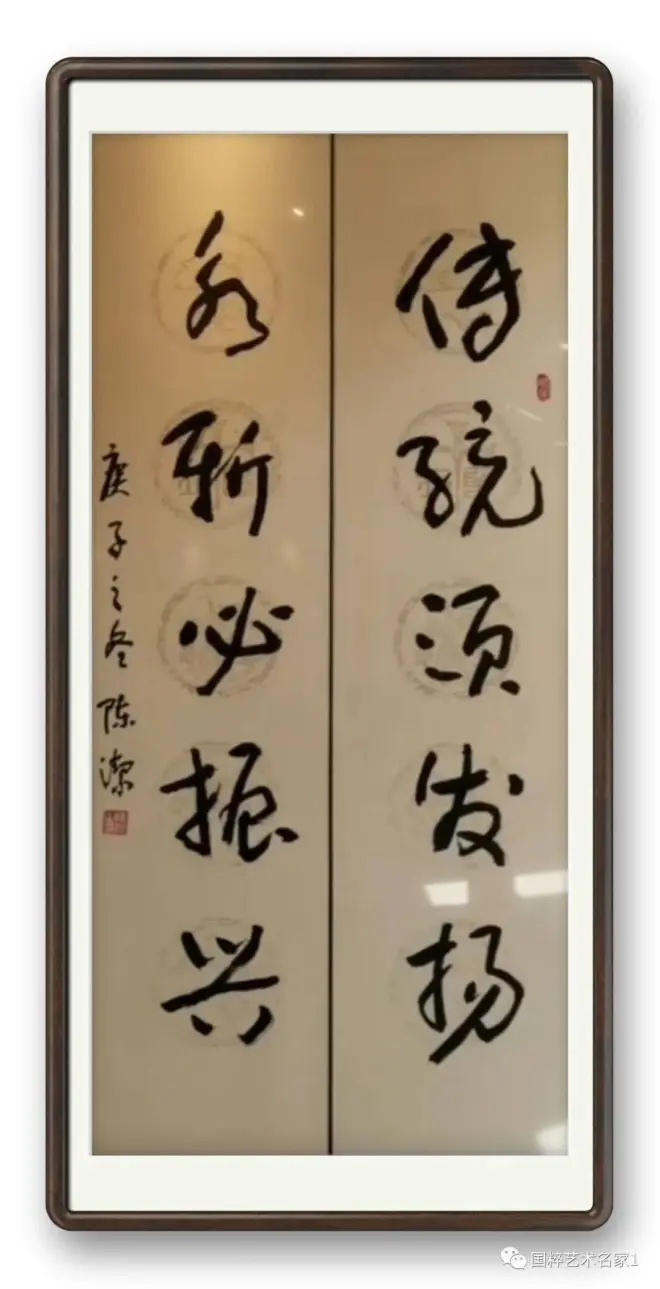 传统须发扬
新必振兴
庚子之冬 陈潔
国粹艺术名家1